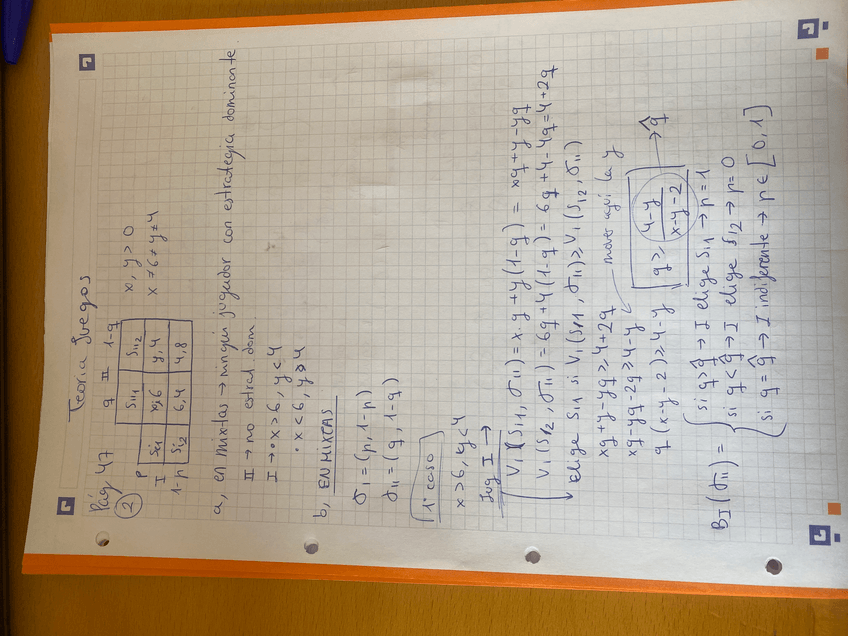 Teoría Juegos
Pág 47
② q II 1-q
P Si11 Si12 x, y > 0
I Si1 x,6 y,4 x ≠ 6 ≠ y ≠ 4
1-p Si2 6,4 4,8
a, en mixtas → ningún jugador con estrategia dominante.
II → no estrat. dom.
I → • x > 6, y < 4
• x < 6, y ≥ 4
b, EN MIXTAS
σI = (p, 1-p)
σII = (q, 1-q)
1º caso
x > 6, y < 4
Jug I →
VI (Si1, σII) = x·q + y(1-q) = xq + y - yq
VI (Si2, σII) = 6q + 4(1-q) = 6q + 4 - 4q = 4 + 2q
elige Si1 si VI (Si1, σII) ≥ VI (Si2, σII)
xq + y - yq ≥ 4 + 2q
xq - yq - 2q ≥ 4 - y mover aquí la y
q (x-y-2) ≥ 4 - y q ≥ 4-y / x-y-2 → q̂
BI (σII) = { si q > q̂ → I elige Si1 → p = 1
si q < q̂ → I elige Si2 → p = 0
si q = q̂ → I indiferente → p ∈ [0, 1]